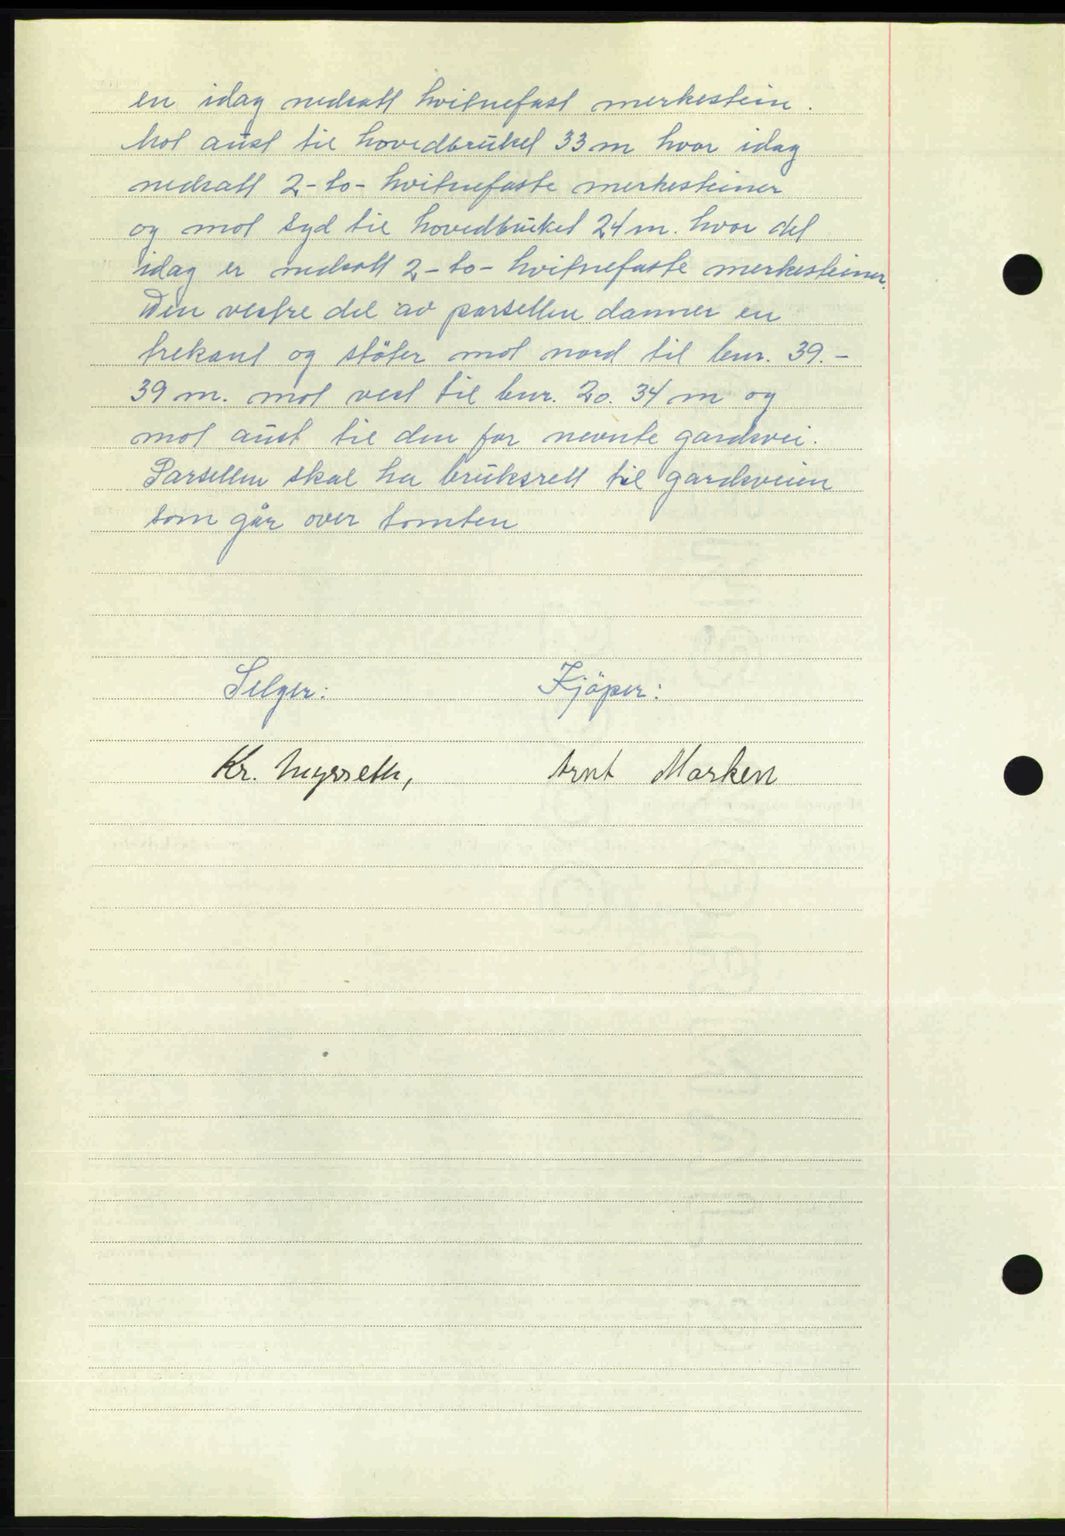 en idag nedsatt hvitnefast merkestein.
Mot aust til hovedbruket 33 m hvor idag
nedsatt 2-to- hvitnefaste merkesteiner
og mot syd til hovedbruket 24 m. hvor det
idag er nedsatt 2-to- hvitnefaste merkesteiner.
Den vestre del av parsellen danner en
trekant og støter mot nord til bnr. 39.-
39 m. mot vest til bnr. 20. 34 m og
mot aust til den før nevnte gardsvei.
Parsellen skal ha bruksrett til gardsveien
som går over tomten
Selger: Kjöper:
Kr. Myrseth, Arnt Marken